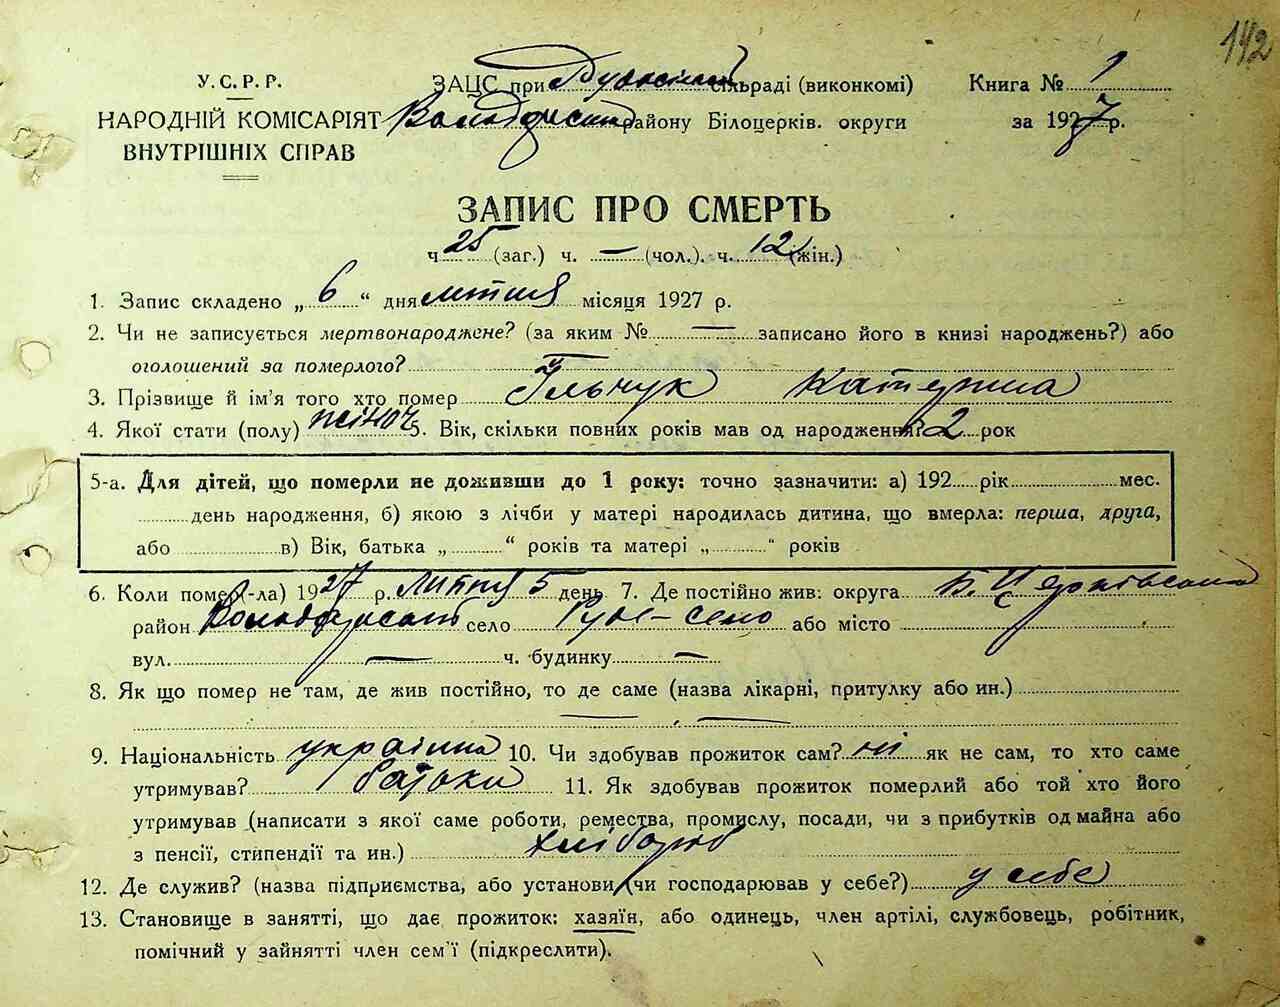 142
У.С.Р.Р.
НАРОДНІЙ КОМІСАРІЯТ
ВНУТРІШНІХ СПРАВ
ЗАЦС при сільраді (виконкомі)
Володарськ району Білоцерків. округи
Книга № 1
за 1927 р.
ЗАПИС ПРО СМЕРТЬ
ч 25 (заг.) ч. — (чол.). ч. 12 (жін.)
1. Запис складено „ 6 “ дня липня місяця 1927 р.
2. Чи не записується мертвонароджене? (за яким № — записано його в книзі народжень?) або
оголошений за померлого?
3. Прізвище й ім'я того хто помер Гульчук Катерина
4. Якої стати (полу) жіноч 5. Вік, скільки повних років мав од народження? 2 рок
5-а. Для дітей, що померли не доживши до 1 року: точно зазначити: а) 192 рік мес.
день народження, б) якою з лічби у матері народилась дитина, що вмерла: перша, друга,
або в) Вік, батька „ “ років та матері „ “ років
6. Коли помер(-ла) 1927 р. Липня 5 день 7. Де постійно жив: округа Б. Церківська
район Володарськ село Руде-село або місто
вул. — ч. будинку —
8. Як що помер не там, де жив постійно, то де саме (назва лікарні, притулку або ин.)
— —
9. Національність українка 10. Чи здобував прожиток сам? ні як не сам, то хто саме
утримував? батьки 11. Як здобував прожиток померлий або той хто його
утримував (написати з якої саме роботи, ремества, промислу, посади, чи з прибутків од майна або
з пенсії, стипендії та ин.) хлібороб
12. Де служив? (назва підприємства, або установи, чи господарював у себе?) у себе
13. Становище в занятті, що дає прожиток: хазяїн, або одинець, член артілі, службовець, робітник,
помічний у зайнятті член сем'ї (підкреслити).